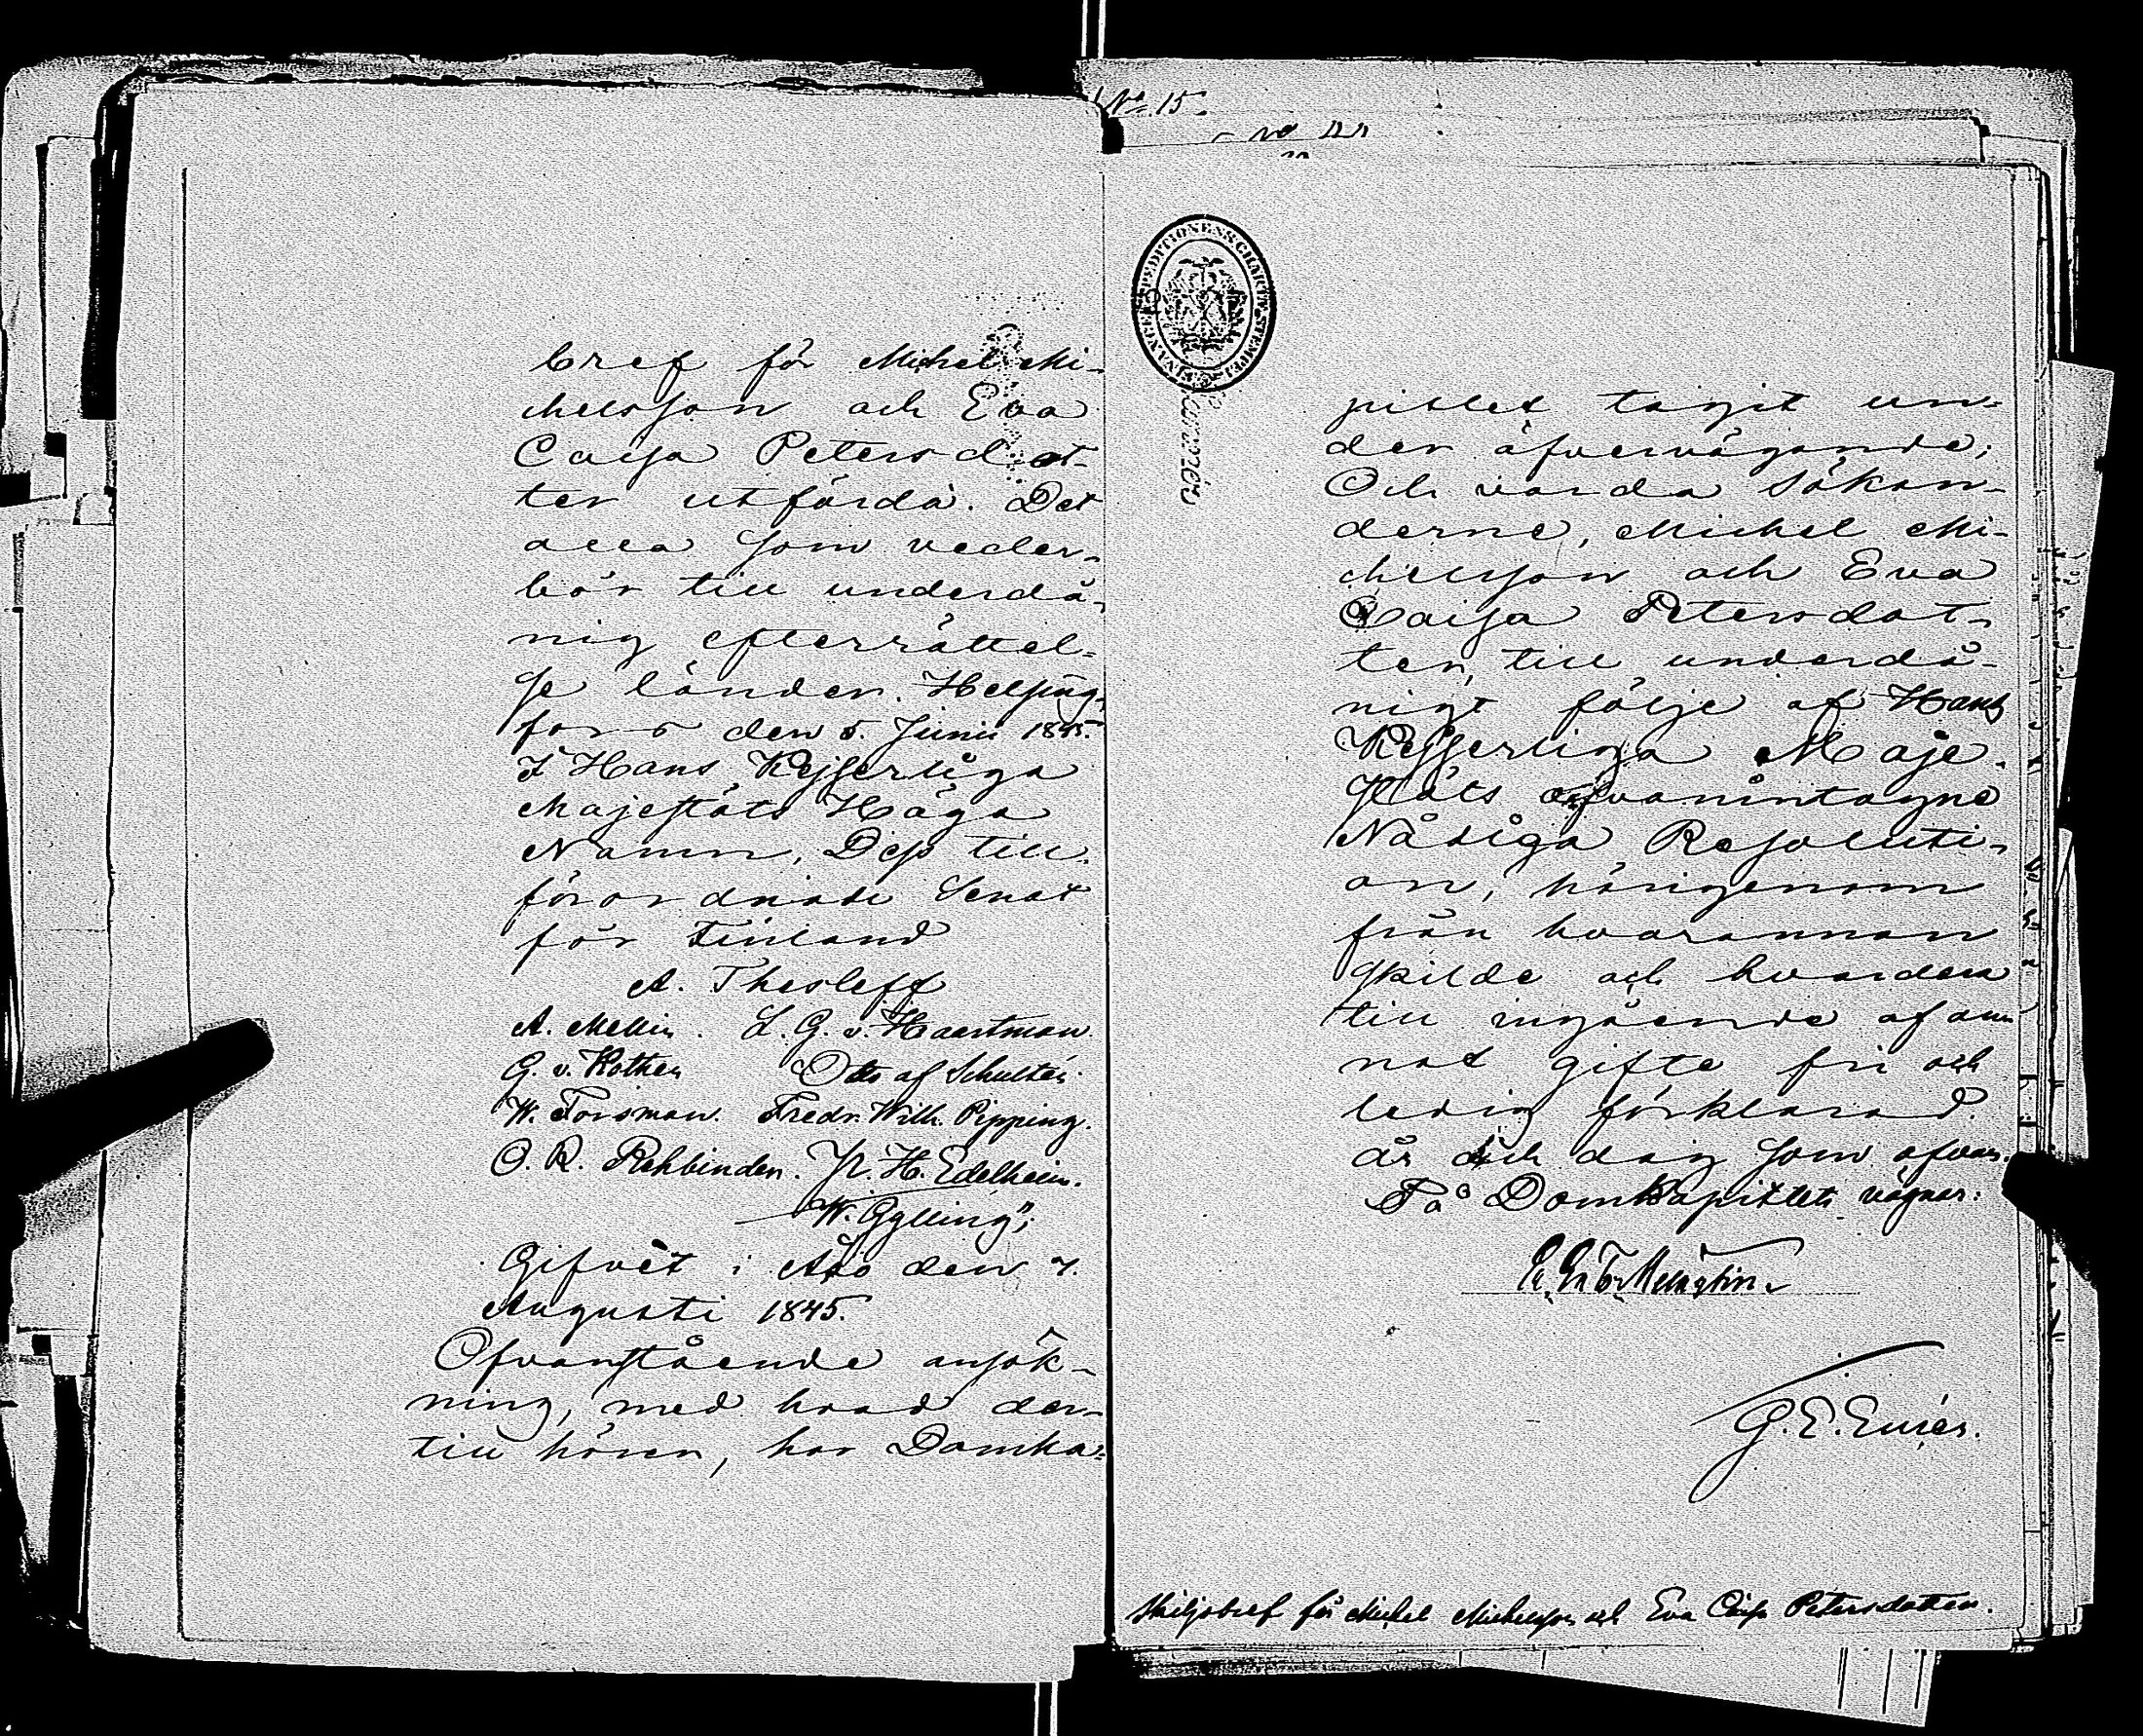 bref för Michel Mi-
chelsson och Eva
Caisa Petersdot-
ter utfärda. Det
alla som veder-
bör till underdå-
nig efterrättel-
se länder. Helsing-
fors den 5. Junii 1845.
I Hans Kejserliga
Majestäts Höga
Namn, Dess till-
förordnade Senat
för Finland
A. Thesleff
A. Mellin. L. G. v. Haartman.
G. v. Kothen Otto af Schultén.
W. Forsman. Fredr. Wilh. Pipping.
O. R. Rehbinder. H. Edelheim.
W. Gylling";
Gifvet i Åbo den 7.
Augusti 1845.
Ofvanstående ansök-
ning, med hvad der-
till hörer, har Domka-
No. 15.
EXPEDITIONENS CHARTÆ STEMPEL
pitlet tagit un-
der öfvervägande;
Och varda Sökan-
derne, Michel Mi-
chelsson och Eva
Caisa Petersdot-
ter, till underdå-
nigt följe af Hans
Kejserliga Maje-
stäts ofvanintagne
Nådiga Resoluti-
on, härigenom
från hvarannan
skilde och hvardera
till ingående af an-
nat gifte fri och
ledig förklarad.
År och dag som ofvan.
På Domkapitlets vägnar:
G. E. Eurén.
Skiljobref för Michel Michelsson och Eva Caisa Petersdotter.